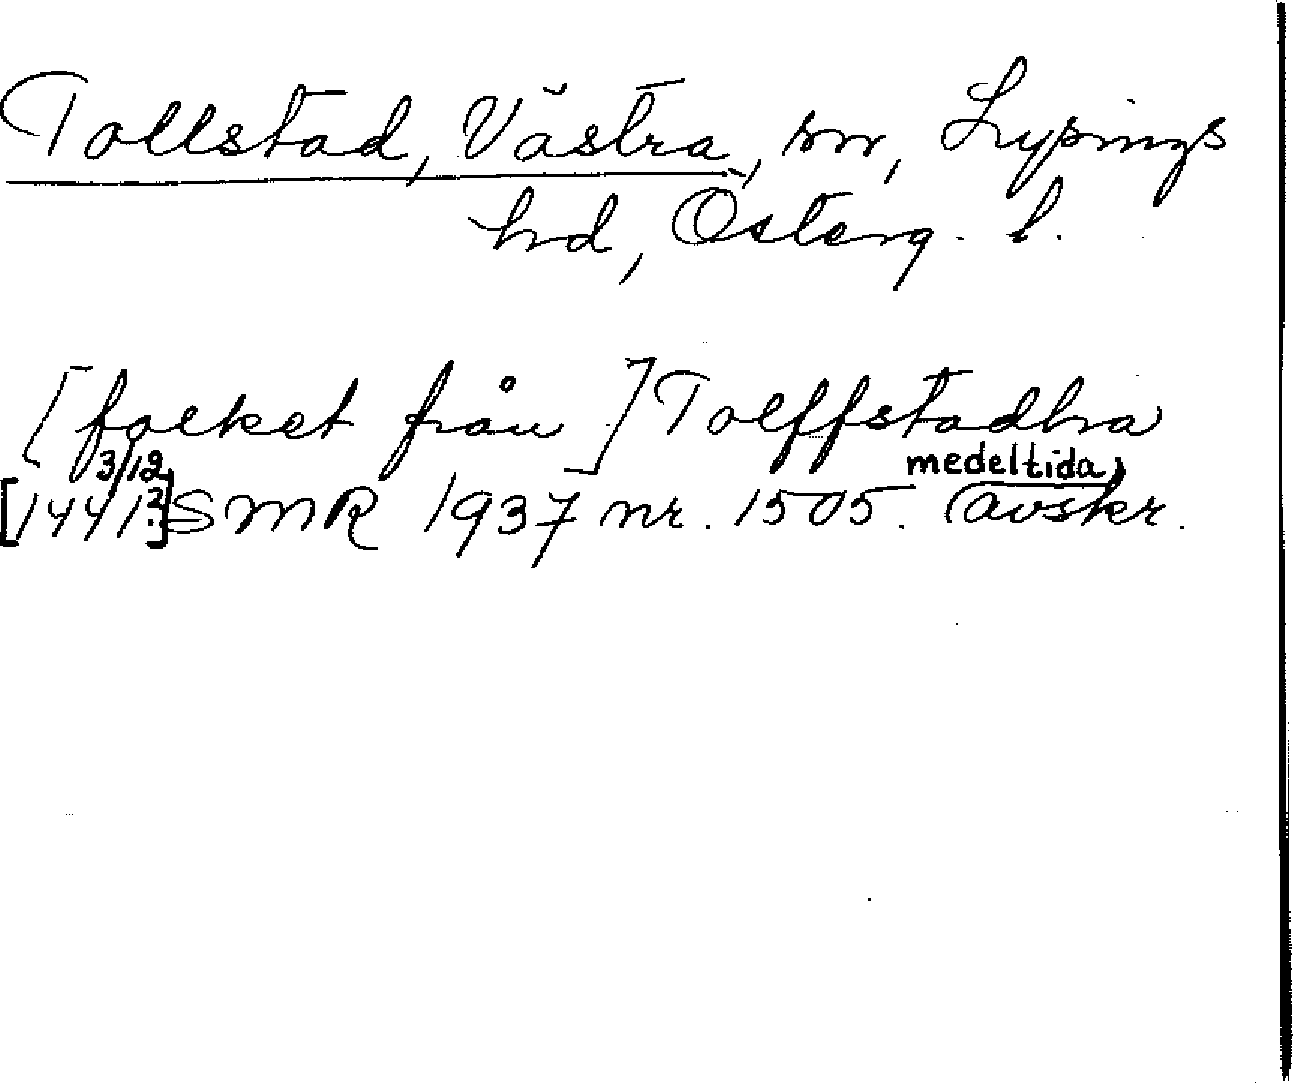 Tollstad, Västra, sn, Lysings
hd, Österg. l.
[folket från] Tolffstadhra
3/12 medeltida
[1441?] SMR 1937 nr. 1505. avskr.